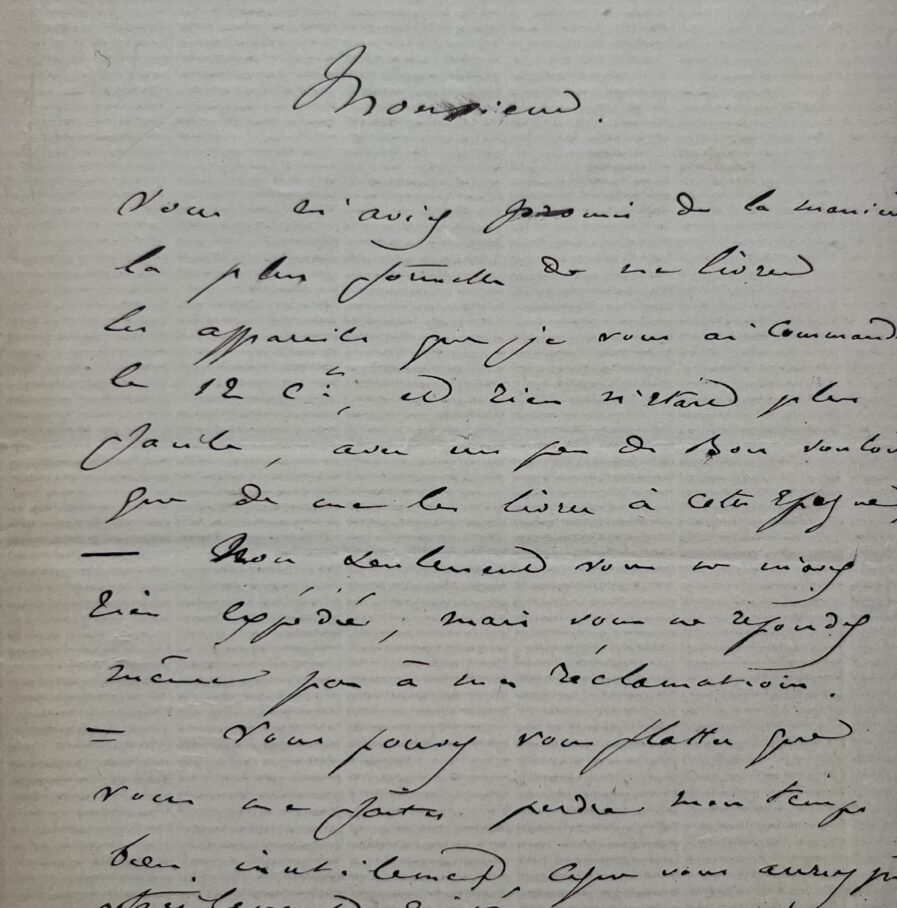 Monsieur.
Vous m'aviez promis de la maniè
la plus formelle de me livrer
les appareils que je vous ai command
le 12 Ct, et rien n'était plus
facile, avec un peu de Bon vouloi
que de me les livrer à cette Epoque,
— Non seulement vous ne m'avez
rien expédié, mais vous ne repondez
même pas à ma réclamation.
= Vous pouvez vous flatter que
vous me faites perdre mon temps
bien inutilement, vous auriez